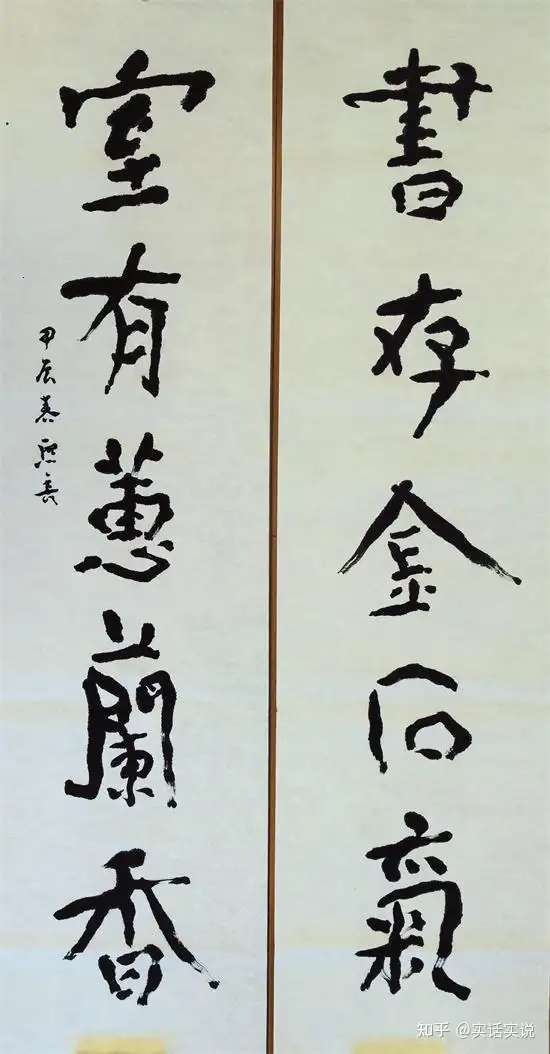 書存金石氣
室有蕙蘭香
甲辰春
知乎 @实话实说